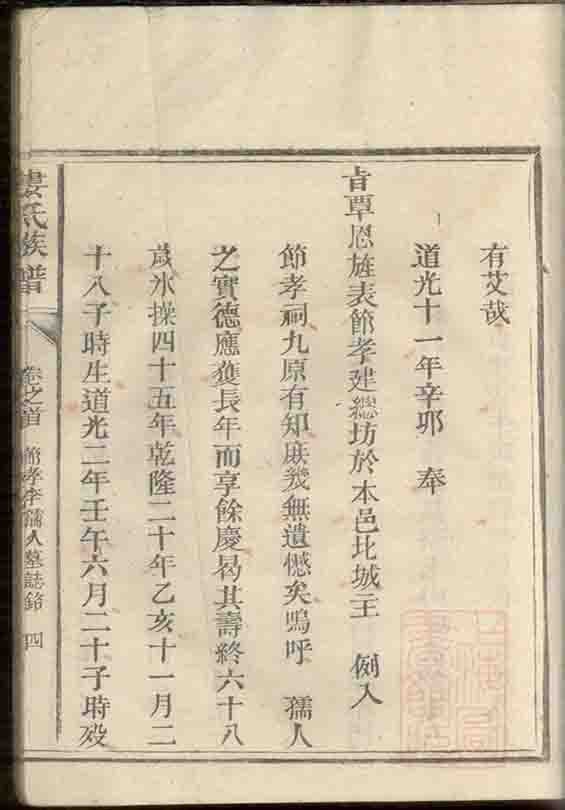 有艾哉
道光十一年辛卯 奉
旨覃恩旌表節孝建總坊於本邑北城主 例入
節孝祠九原有知庶幾無遺憾矣嗚呼 孺人
之實德應獲長年而享餘慶曷其壽終六十八
歲氷操四十五年乾隆二十年乙亥十一月二
十八子時生道光二年壬午六月二十子時歿
婁氏族譜
卷之首 節孝李孺人墓誌銘 四